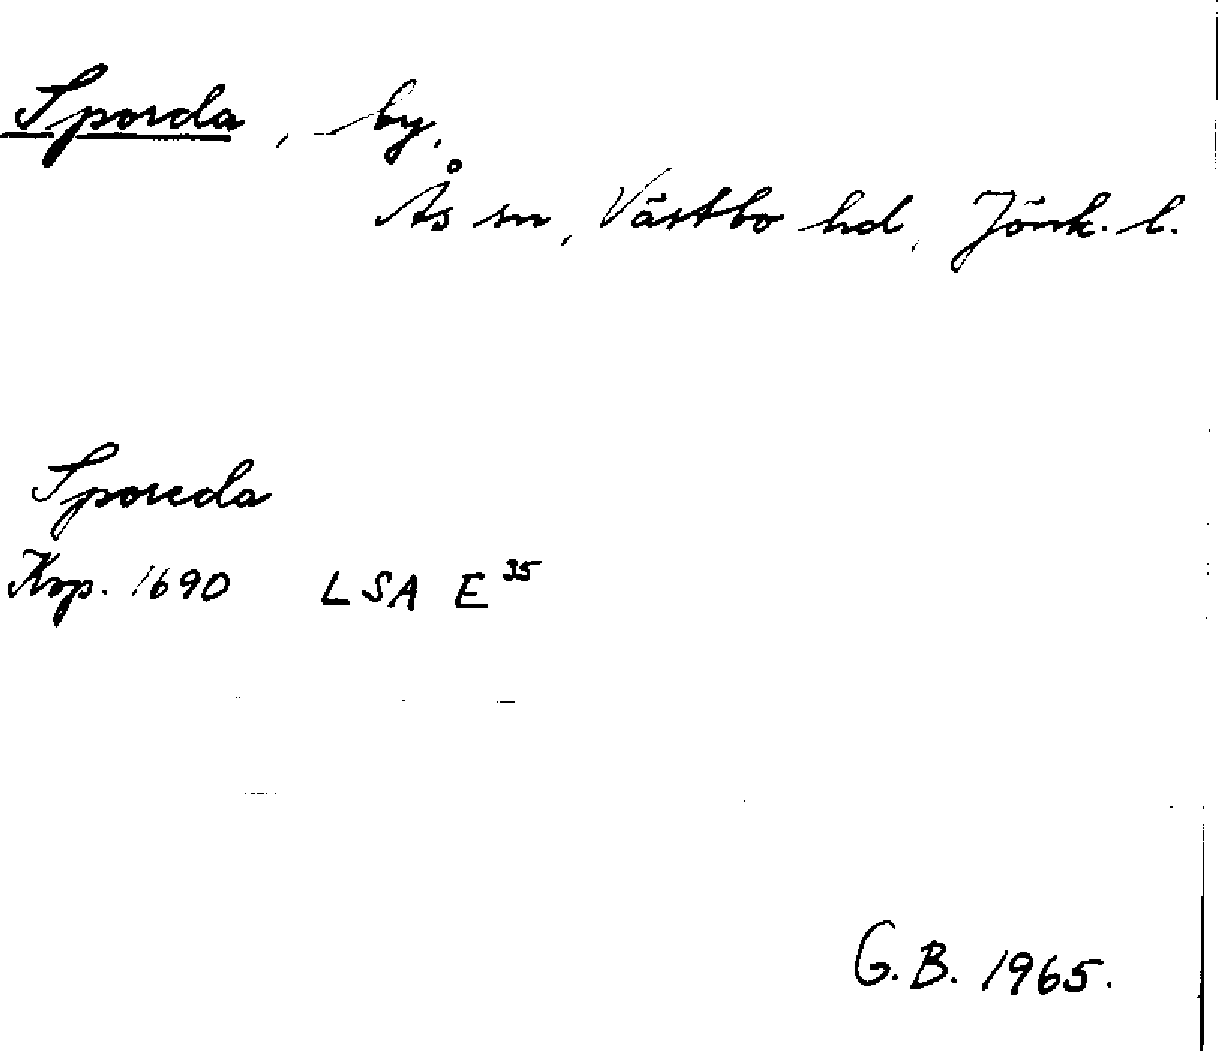 Sporda, by,
Ås sn, Västbo hd, Jönk. l.
Sporeda
Krp. 1690 LSA E 35
G.B. 1965.